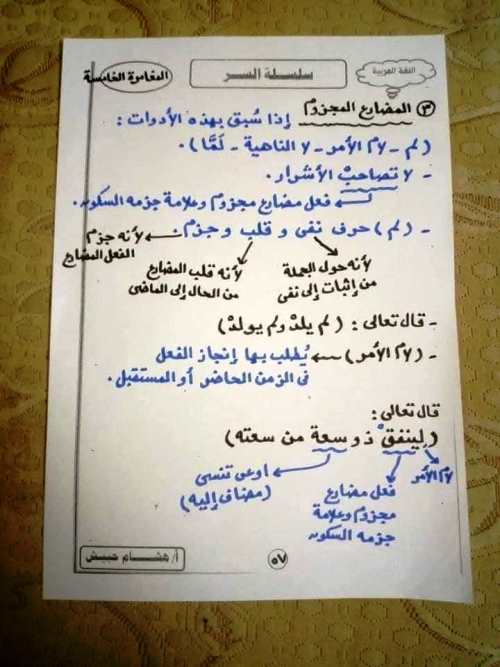 اللغة العربية
سلسلة السر
المغامرة الخامسة
٣ المضارع المجزوم إذا سُبق بهذه الأدوات :
(لم - لام الأمر - لا الناهية - لمَّا) .
- لا تصاحبْ الأشرار .
فعل مضارع مجزوم وعلامة جزمه السكون .
- (لم) حرف نفى و قلب و جزم .
لأنه جزم الفعل المضارع
لأنه قلب المضارع من الحال إلى الماضى
لأنه حول الجملة من إثبات إلى نفى
- قال تعالى : (لم يلدْ ولم يولدْ)
- (لام الأمر) يُطلب بها إنجاز الفعل
فى الزمن الحاضر أو المستقبل .
قال تعالى :
(لينفقْ ذو سعة من سعته)
لام الأمر
فعل مضارع
مجزوم وعلامة
جزمه السكون
اوعى تنسى
(مضاف إليه)
أ/ هشام حبيش
٥٧